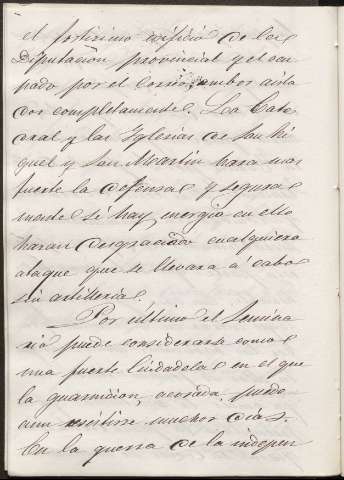 el fortisimo edificio de la
Diputacion provincial y el ocu
pado por el Correo, ambos aisla
dos completamente. La Cate
dral y las Yglesias de San Mi
guel y San Martin hara mas
fuerte la defensa y segura
mente si hay energia en ello
haran desgraciado cualquiera
ataque que se llevara á cabo
sin artilleria.
Por último el Semina
rio puede considerarse como
una fuerte Ciudadela en el que
la guarnicion, acosada, puede
aun resistirse muchos dias.
En la guerra de la indepen